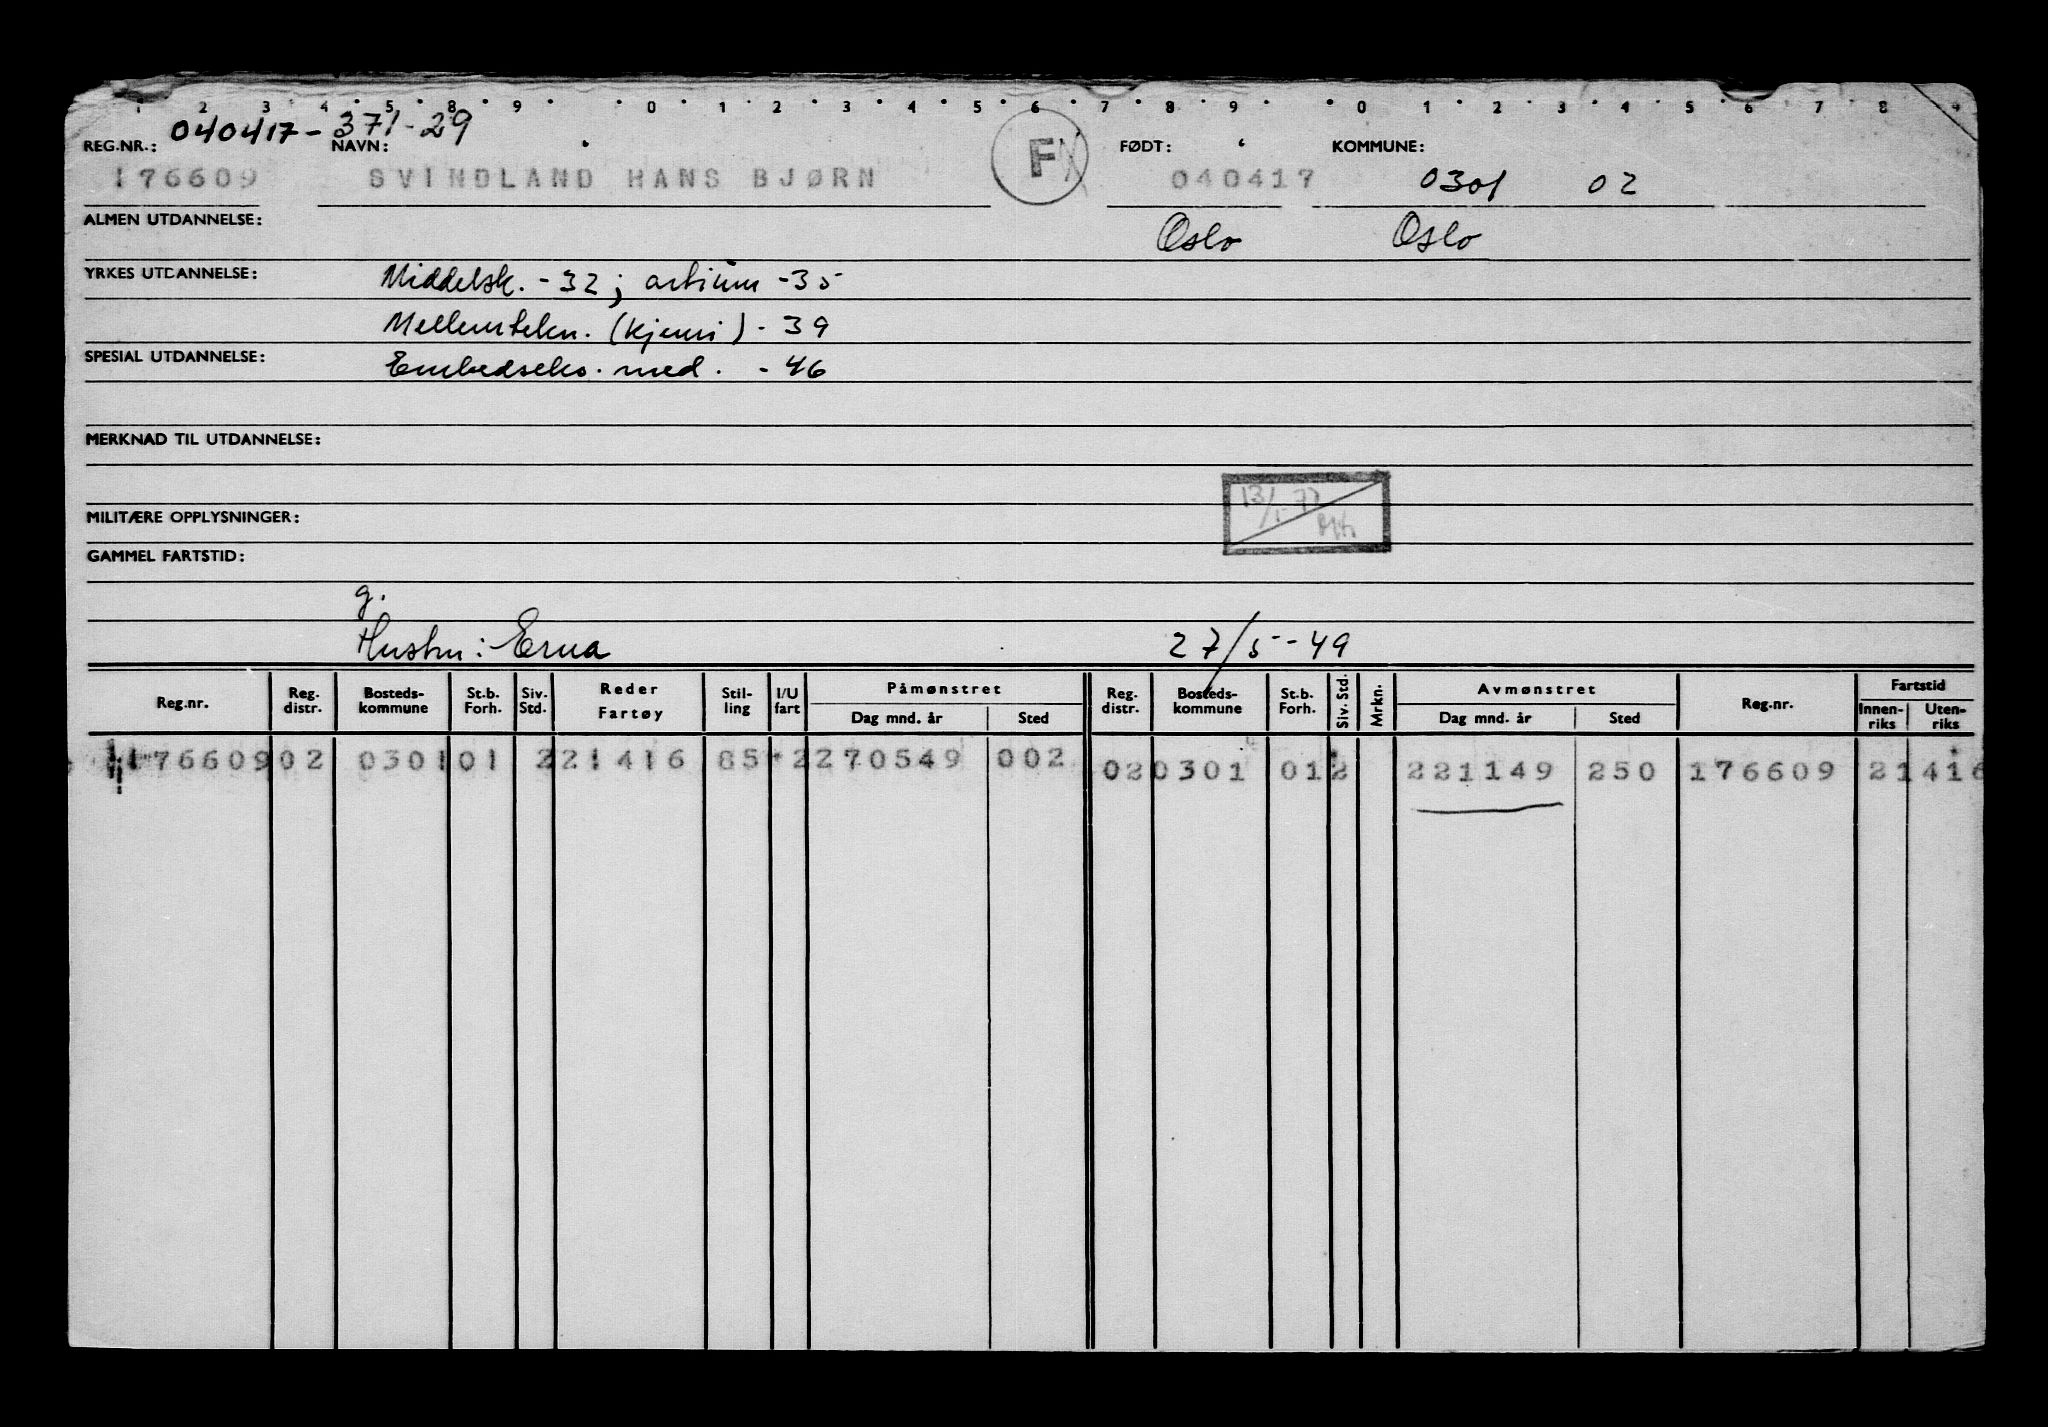 1 2 3 4 5 8 9 0 1 2 3 4 5 6 7 8 9 0 1 2 3 4 5 6 7 8 9
040417-371-29
REG.NR.: NAVN: FØDT: KOMMUNE:
176609 SVINDLAND HANS BJØRN F 040417 0301 02
ALMEN UTDANNELSE: Oslo Oslo
YRKES UTDANNELSE: Middelsk. -32; artium -35
Mellemtekn. (kjemi) - 39
SPESIAL UTDANNELSE: Embedseks. med. - 46
MERKNAD TIL UTDANNELSE:
13/1-77
MILITÆRE OPPLYSNINGER:
GAMMEL FARTSTID:
g.
Hustru: Erna 27/5-49
Reg.nr. Reg. distr. Bosteds- kommune St.b. Forh. Siv. Std. Reder Fartøy Stil- ling I/U fart Påmønstret Dag mnd. år Sted Reg. distr. Bosteds- kommune St.b. Forh. Siv. Std. Mrkn. Avmønstret Dag mnd. år Sted Reg.nr. Fartstid Innen- riks Uten- riks
176609 02 0301 01 2 21416 85 2 270549 002 02 0301 01 2 221149 250 176609 21416